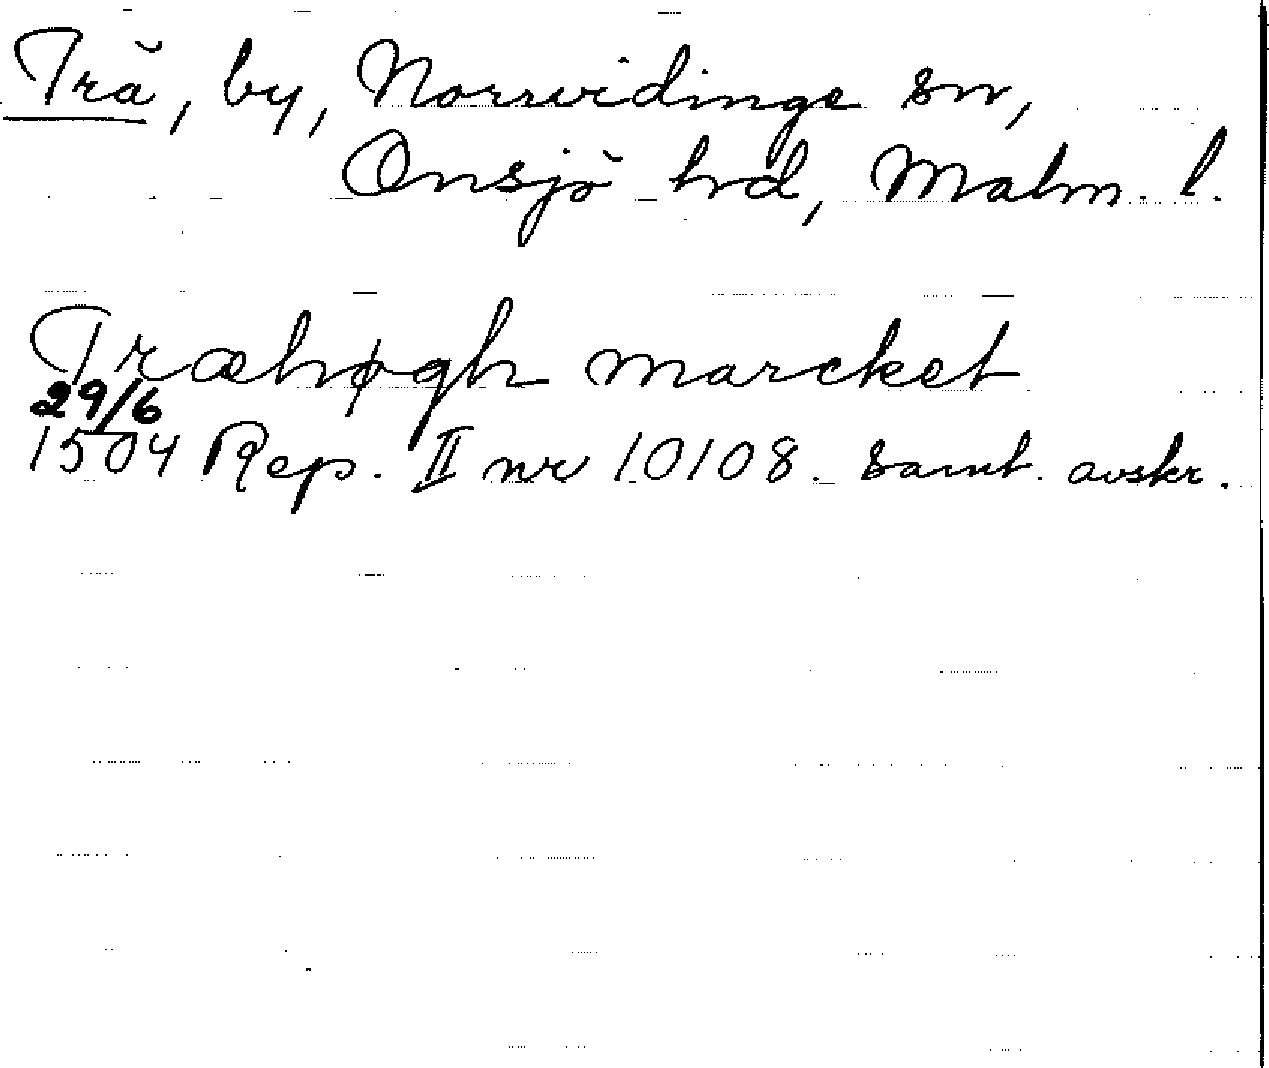 Trä, by, Norrvidinge sn,
Onsjö hrd, Malm. l.
Træhøgh marcket
29/6
1504 Rep. II nr 10108. samt. avskr.